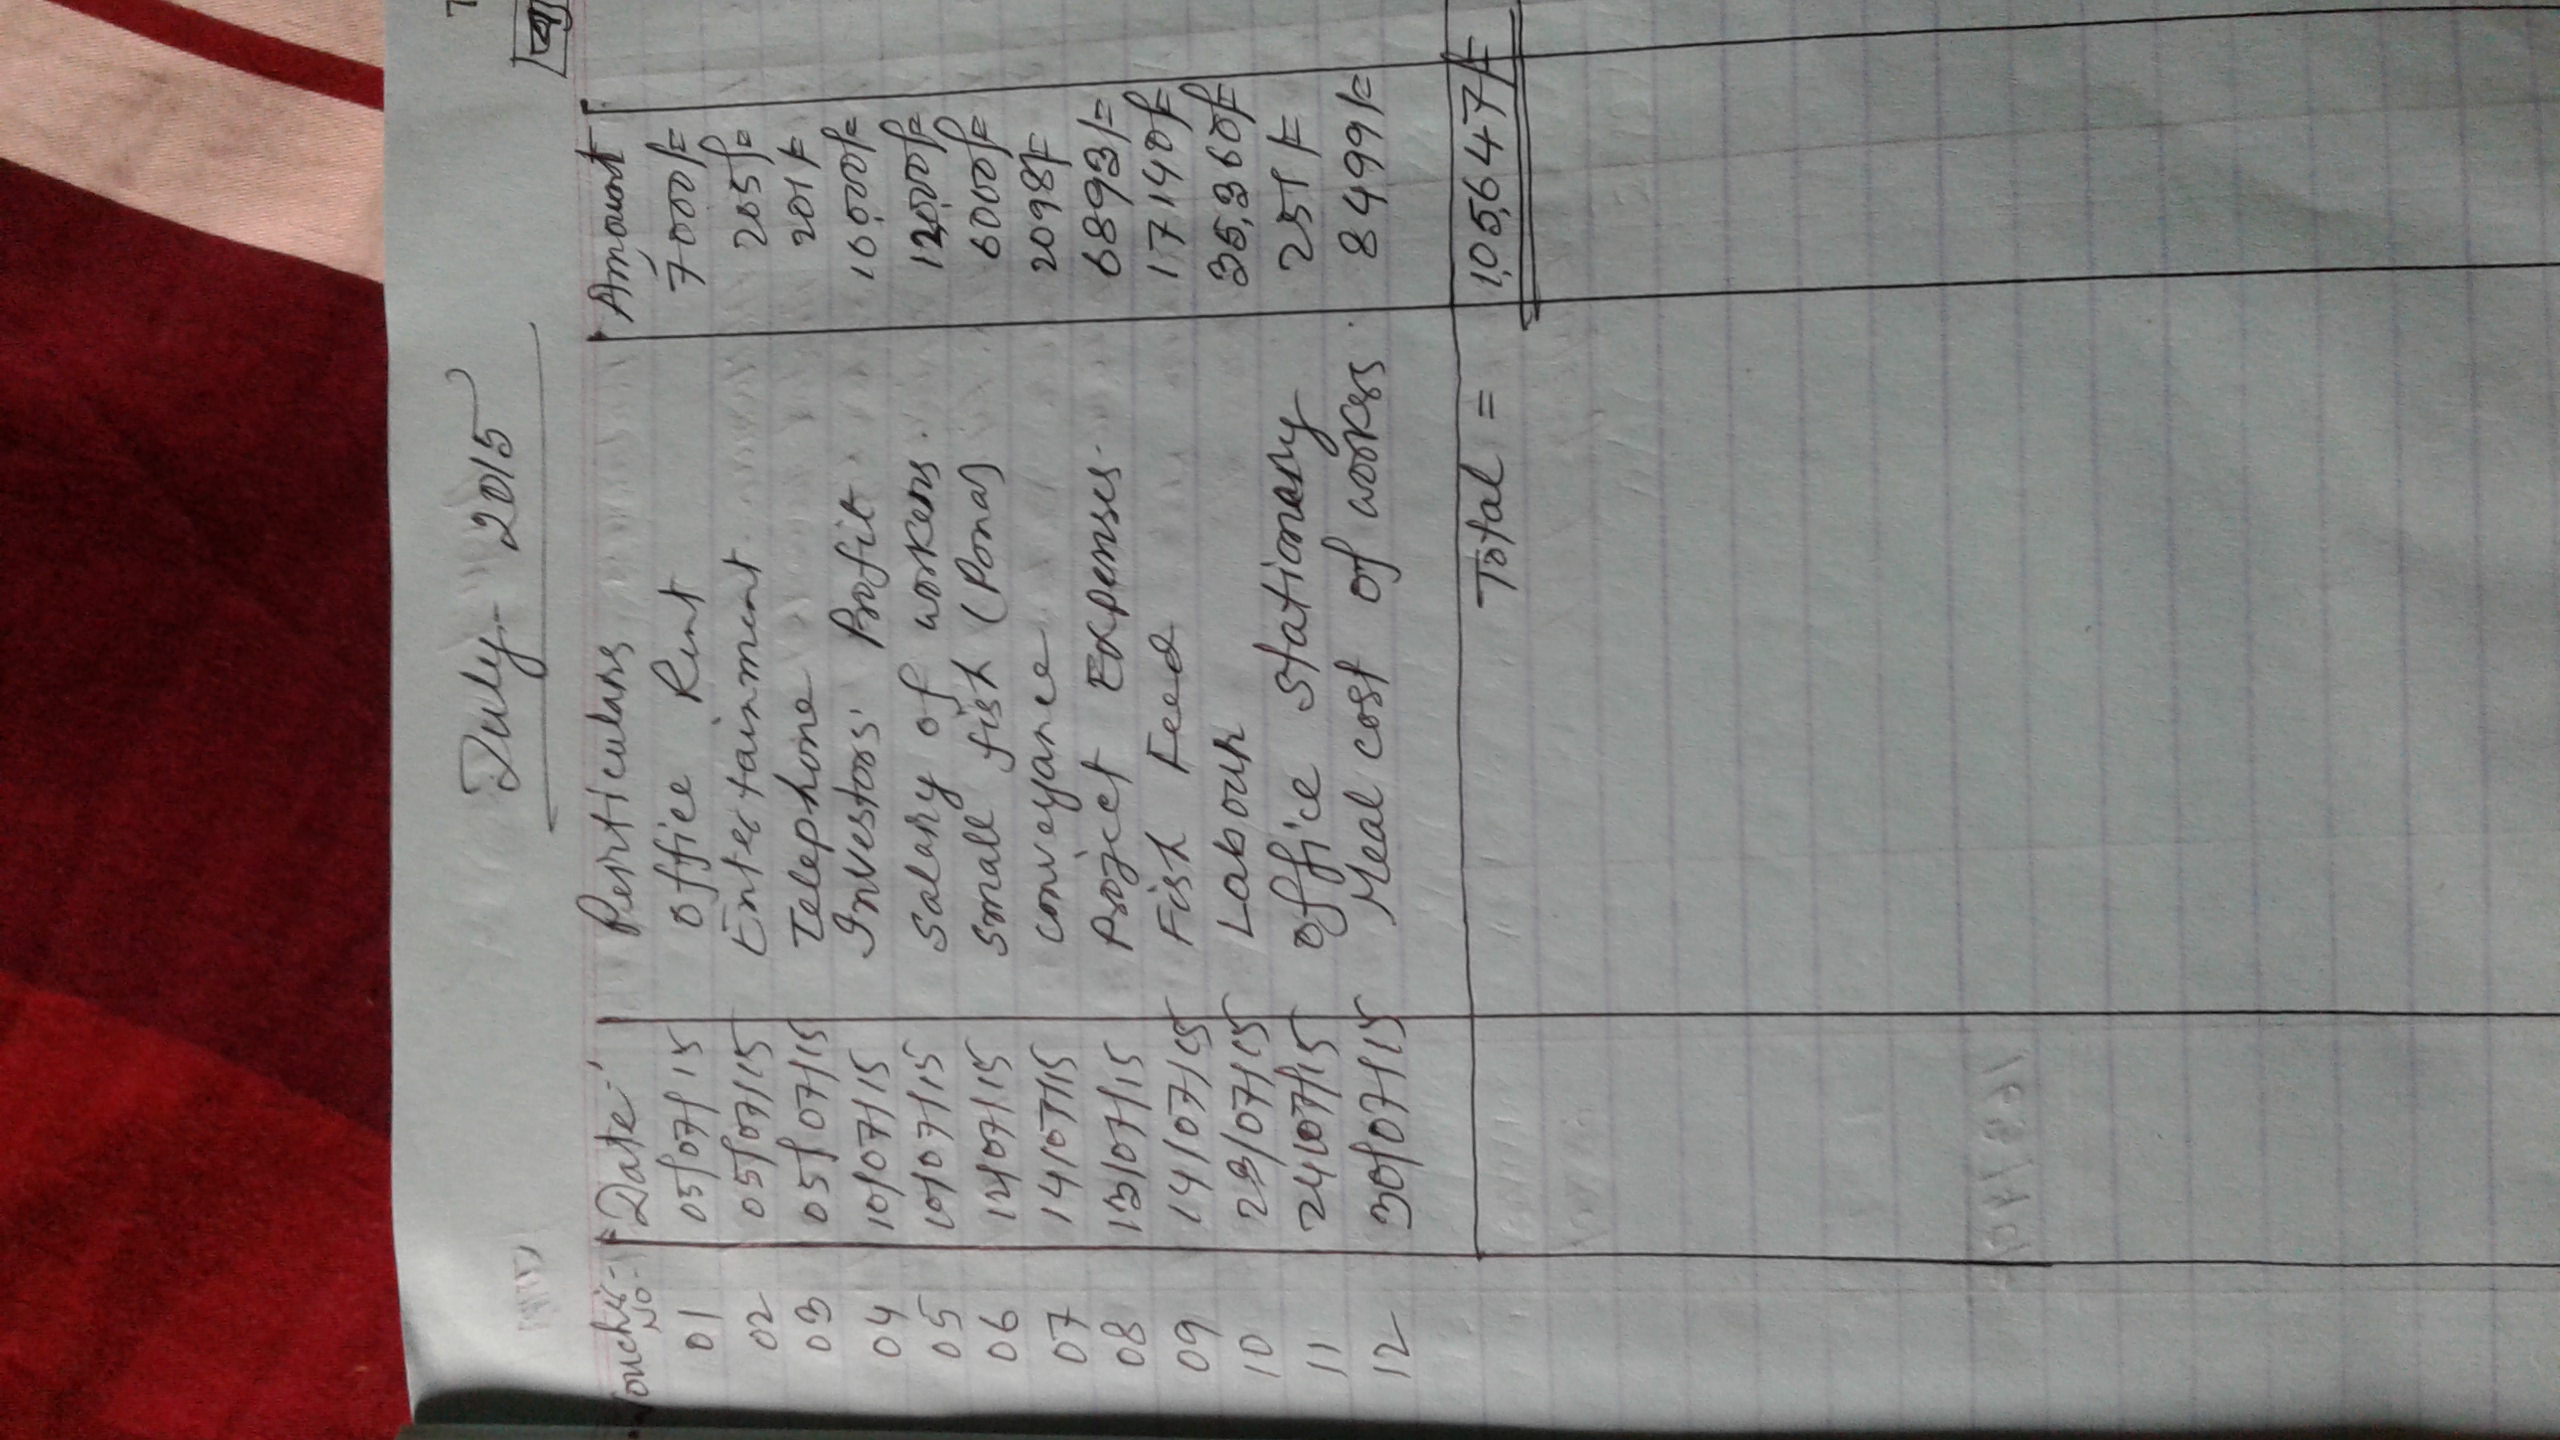 July- 2015
Voucher No- Date- Perticulars Amount
01 05/07/15 Office Rent 7000/=
02 05/07/15 Entertainment 205/=
03 05/07/15 Telephone 201/=
04 10/07/15 Investors' Profit 10,000/=
05 10/07/15 Salary of workers. 12,000/=
06 12/07/15 Small fish (Pona) 6000/=
07 14/07/15 Conveyance 2098/=
08 13/07/15 Project Expenses. 6893/=
09 14/07/15 Fish Feed 17140/=
10 23/07/15 Labour 35,360/=
11 24/07/15 Office Stationary 251/=
12 30/07/15 Meal cost of workers 8499/=
Total = 1,05,647/=